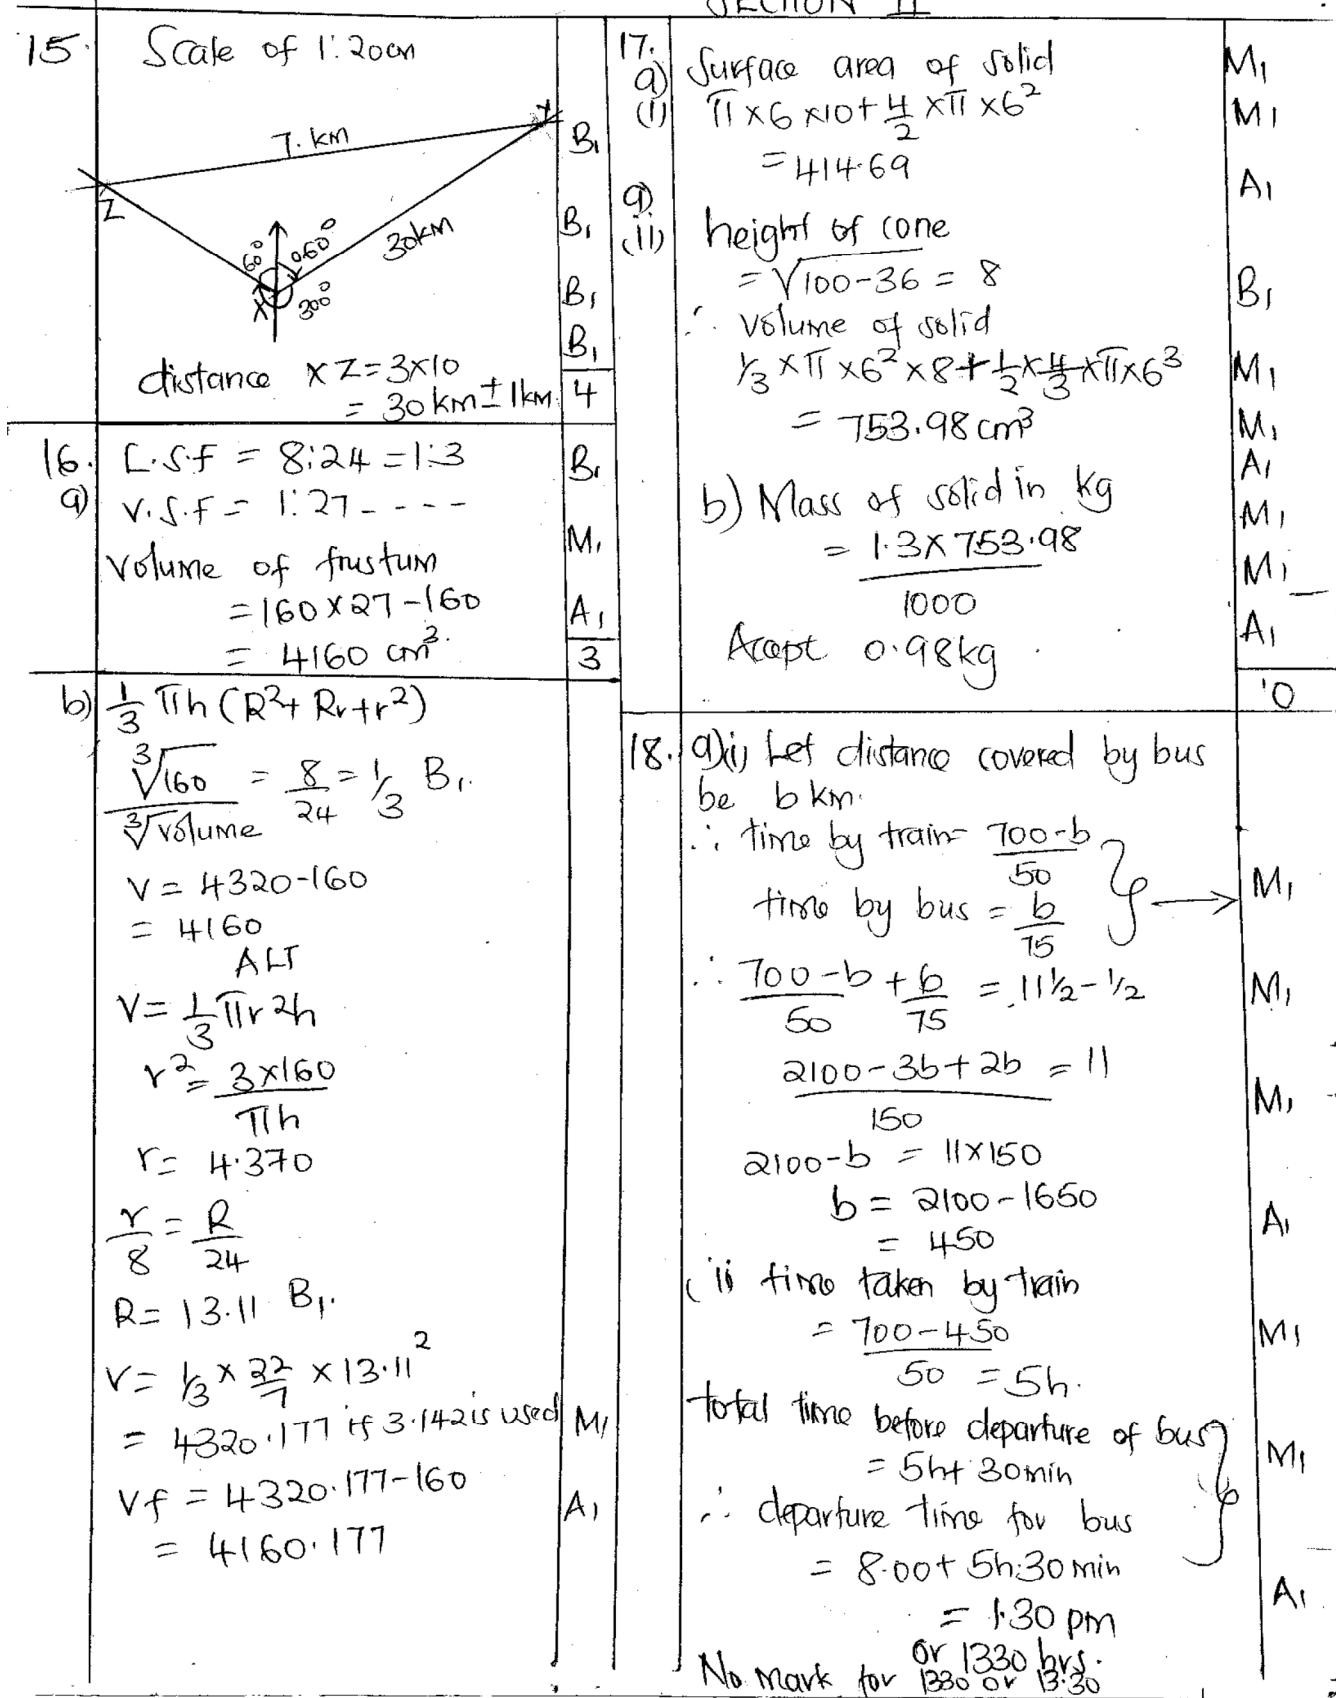 SECTION II
15.
Scale of 1:20cm
7. km
Y
Z
60°
060°
30km
X
300°
B1
B1
B1
B1
distance XZ=3×10
= 30km±1km
4
16.
a)
L.S.F = 8:24 = 1:3
B1
V.S.F = 1:27 - - - -
M1
Volume of frustum
= 160×27-160
A1
= 4160 cm³.
3
b) 1/3 πh (R²+ Rr+r²)
∛160 / ∛volume = 8/24 = 1/3 B1.
V = 4320-160
= 4160
ALT
V = 1/3 πr2h
r² = 3×160 / πh
r = 4.370
r/8 = R/24
R = 13.11 B1.
V = 1/3 × 22/7 × 13.11²
= 4320.177 if 3.142 is used M1
Vf = 4320.177-160 A1
= 4160.177
17.
a)
(i)
Surface area of solid M1
π×6×10+4/2×π×6² M1
= 414.69 A1
a)
(ii)
height of cone
= √100-36 = 8 B1
∴ volume of solid
1/3×π×6²×8+1/2×4/3×π×6³ M1
= 753.98cm³ M1
A1
b) Mass of solid in kg M1
= 1.3×753.98 / 1000 M1
Accept 0.98kg A1
10
18. a)(i) Let distance covered by bus
be b km.
∴ time by train = 700-b / 50
time by bus = b/75 → M1
∴ 700-b / 50 + b/75 = 11½-½ M1
2100-3b+2b / 150 = 11 M1
2100-b = 11×150
b = 2100-1650 A1
= 450
(ii time taken by train
= 700-450 / 50 = 5h. M1
total time before departure of bus
= 5h+30min M1
∴ departure time for bus
= 8.00+5h:30min
= 1.30 pm A1
or 1330 hrs.
No mark for 1330 or 13.30